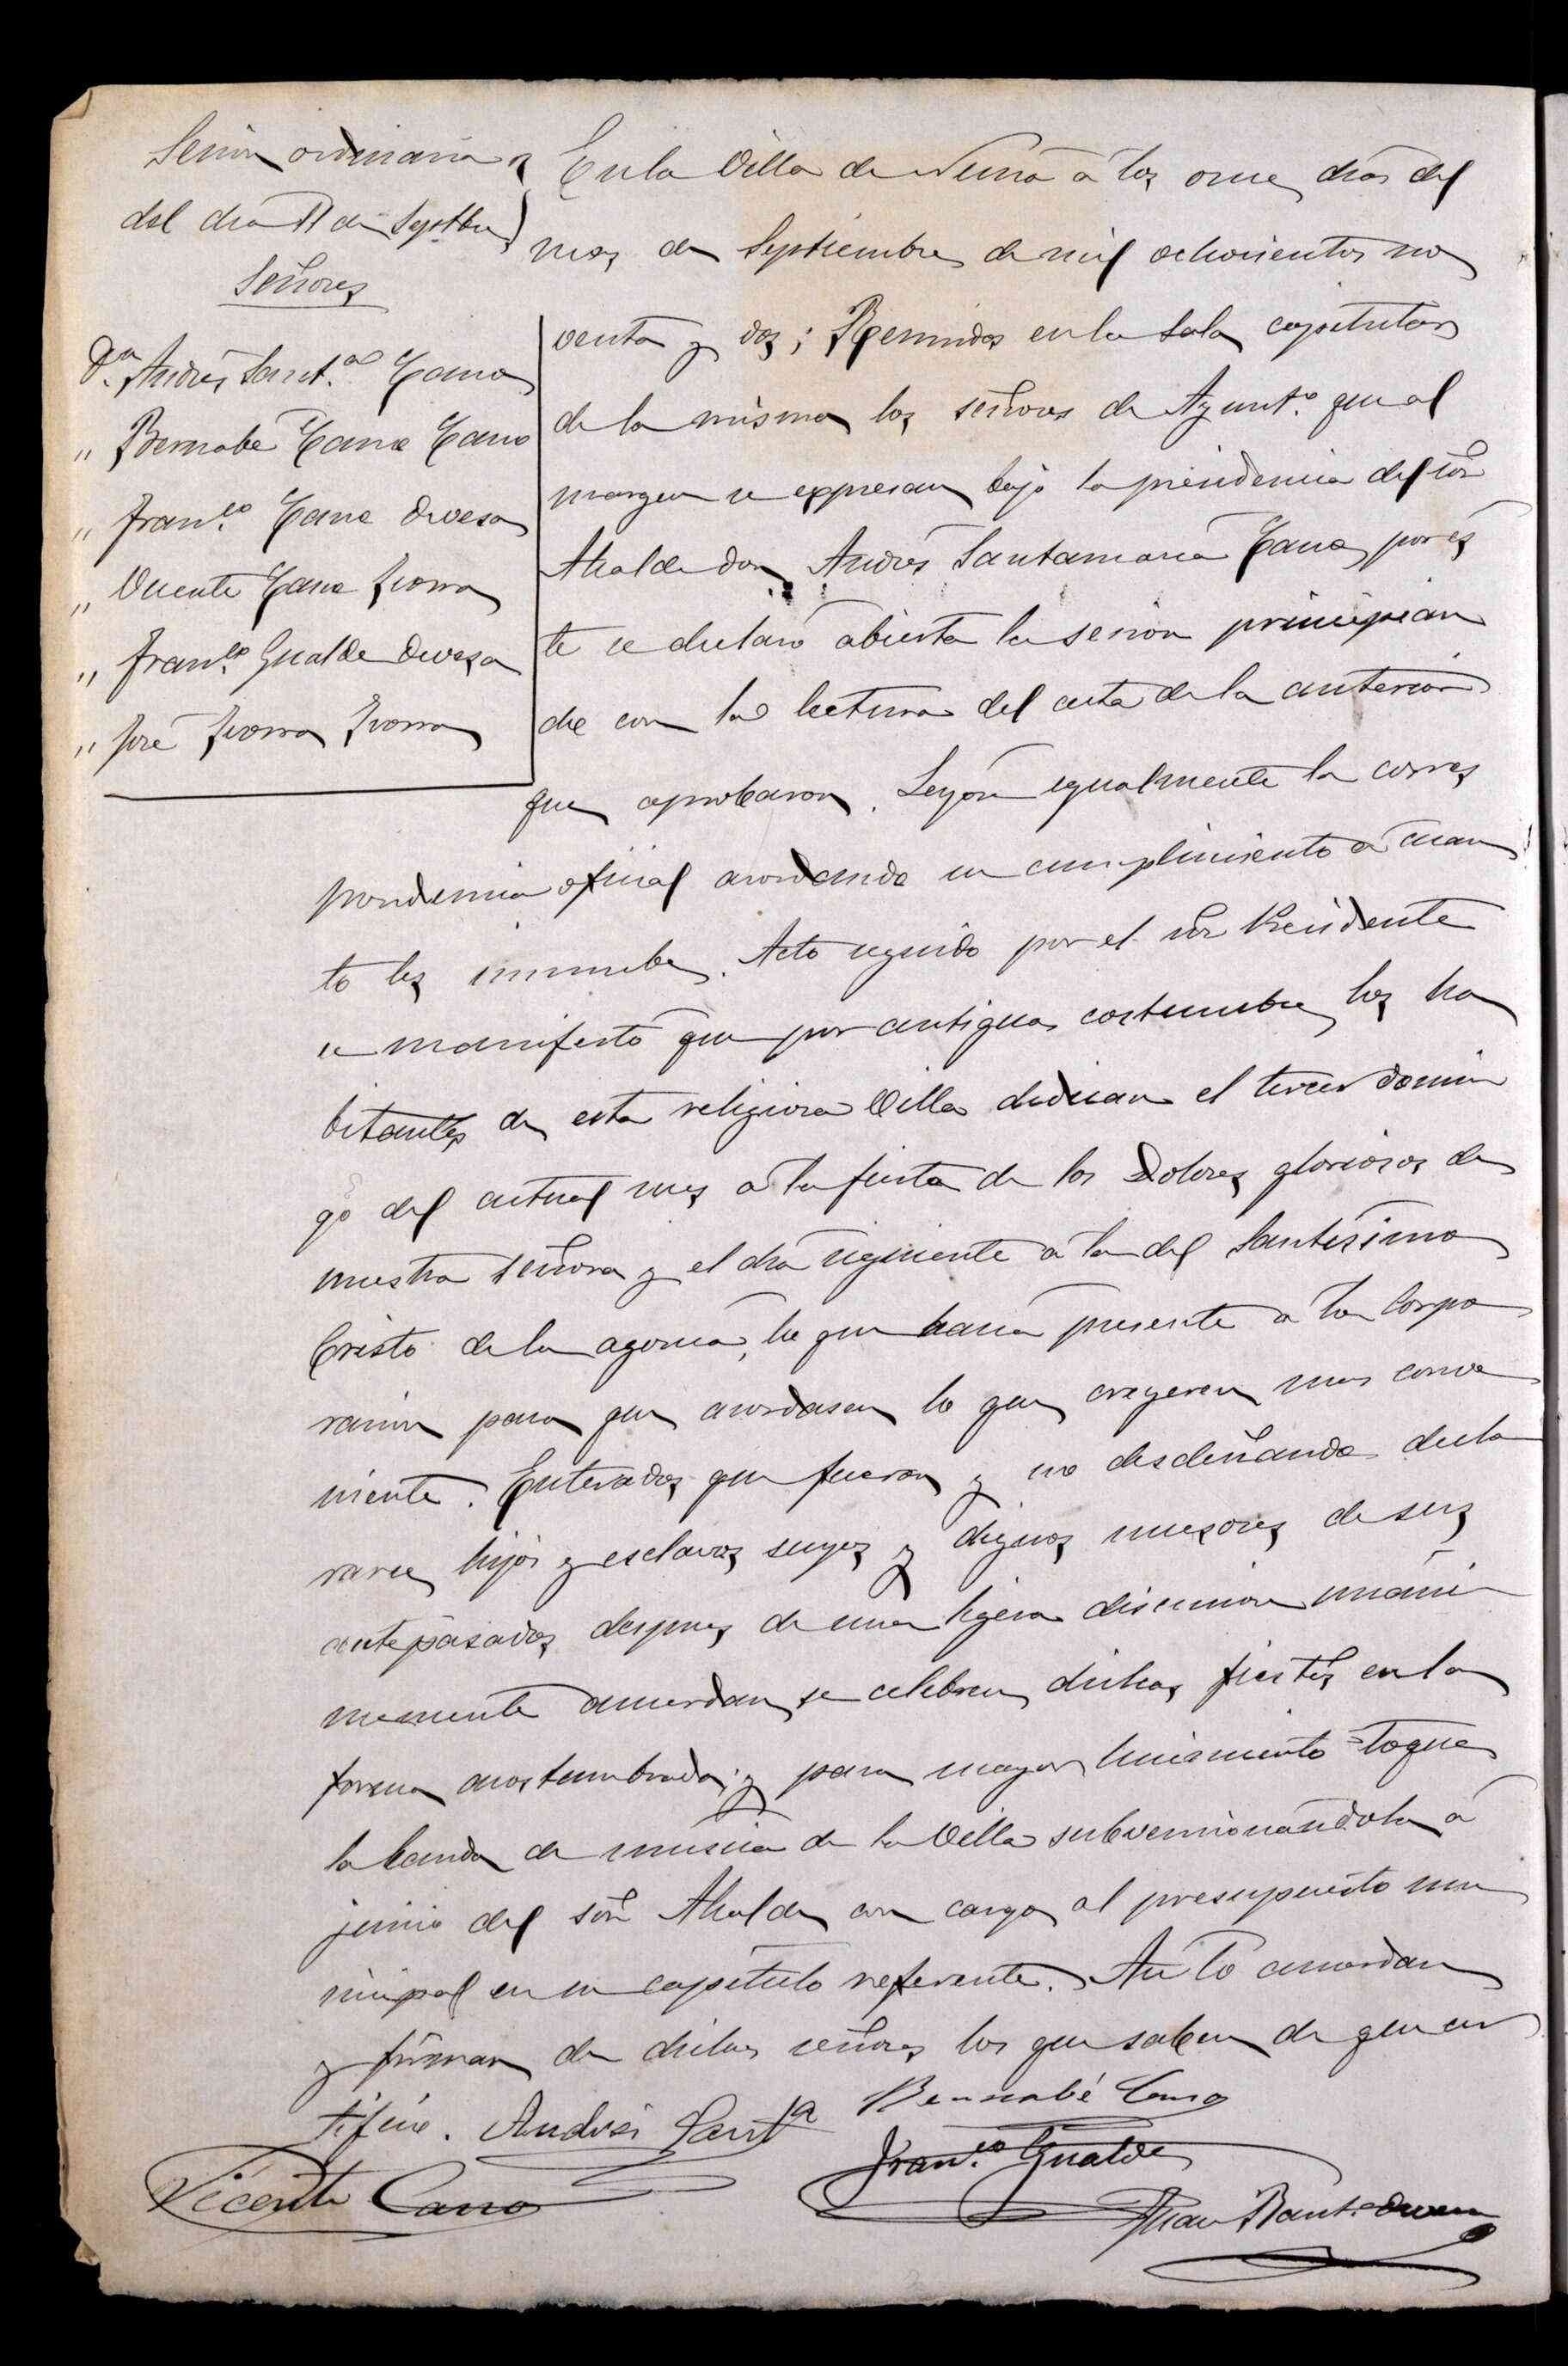 Sesion ordinaria
del dia 11 de Septbre
Señores
Dn. Andrés Sant.a Cano
" Bernabé Cano Cano
" Fran.co Cano Devesa
" Vicente Cano Ivorra
" Fran.co Gualde Devesa
" José Ivorra Ivorra
En la Villa de á los once dias del
mes de Septiembre de mil ochocientos no
venta y dos; Reunidos en la Sala capitular
de la misma los señores de Ayunt.o que al
margen se expresan bajo la presidencia del sor
Alcalde don Andrés Santamaria Cano, por és
te se declaró abierta la sesion principian
do con la lectura del acta de la anterior
que aprobaron. Leyóse igualmente la corres
pondencia oficial acordando su cumplimiento á cuan
to les incumbe. Acto seguido por el sor Presidente
se manifestó que por antigua costumbre los ha
bitantes de esta religiosa Villa dedican el tercer domin
go del actual mes á la fiesta de los Dolores gloriosos de
nuestra señora y el dia siguiente á la del Santisimo
Cristo de la agonia, lo que hacia presente á la Corpo
racion para que acordasen lo que creyeren mas conve
niente. Enterados que fueron y no desdeñando decla
rarse hijos y esclavos suyos y dignos sucesores de sus
antepasados, despues de una ligera discusion unani
memente acuerdan se celebren dichas fiestas en la
forma acostumbrada; y para mayor lucimiento toque
la banda de música de la Villa subvencionándola á
juicio del sor Alcalde con cargo al presupuesto mu
nicipal en su capitulo referente. Asi lo acuerdan
y firman de dichos señores los que saben de que cer
tifico. Andrés Santa Bernabé Cano
Vicente Cano Fran.co Gualde
Juan Baut.a Devesa